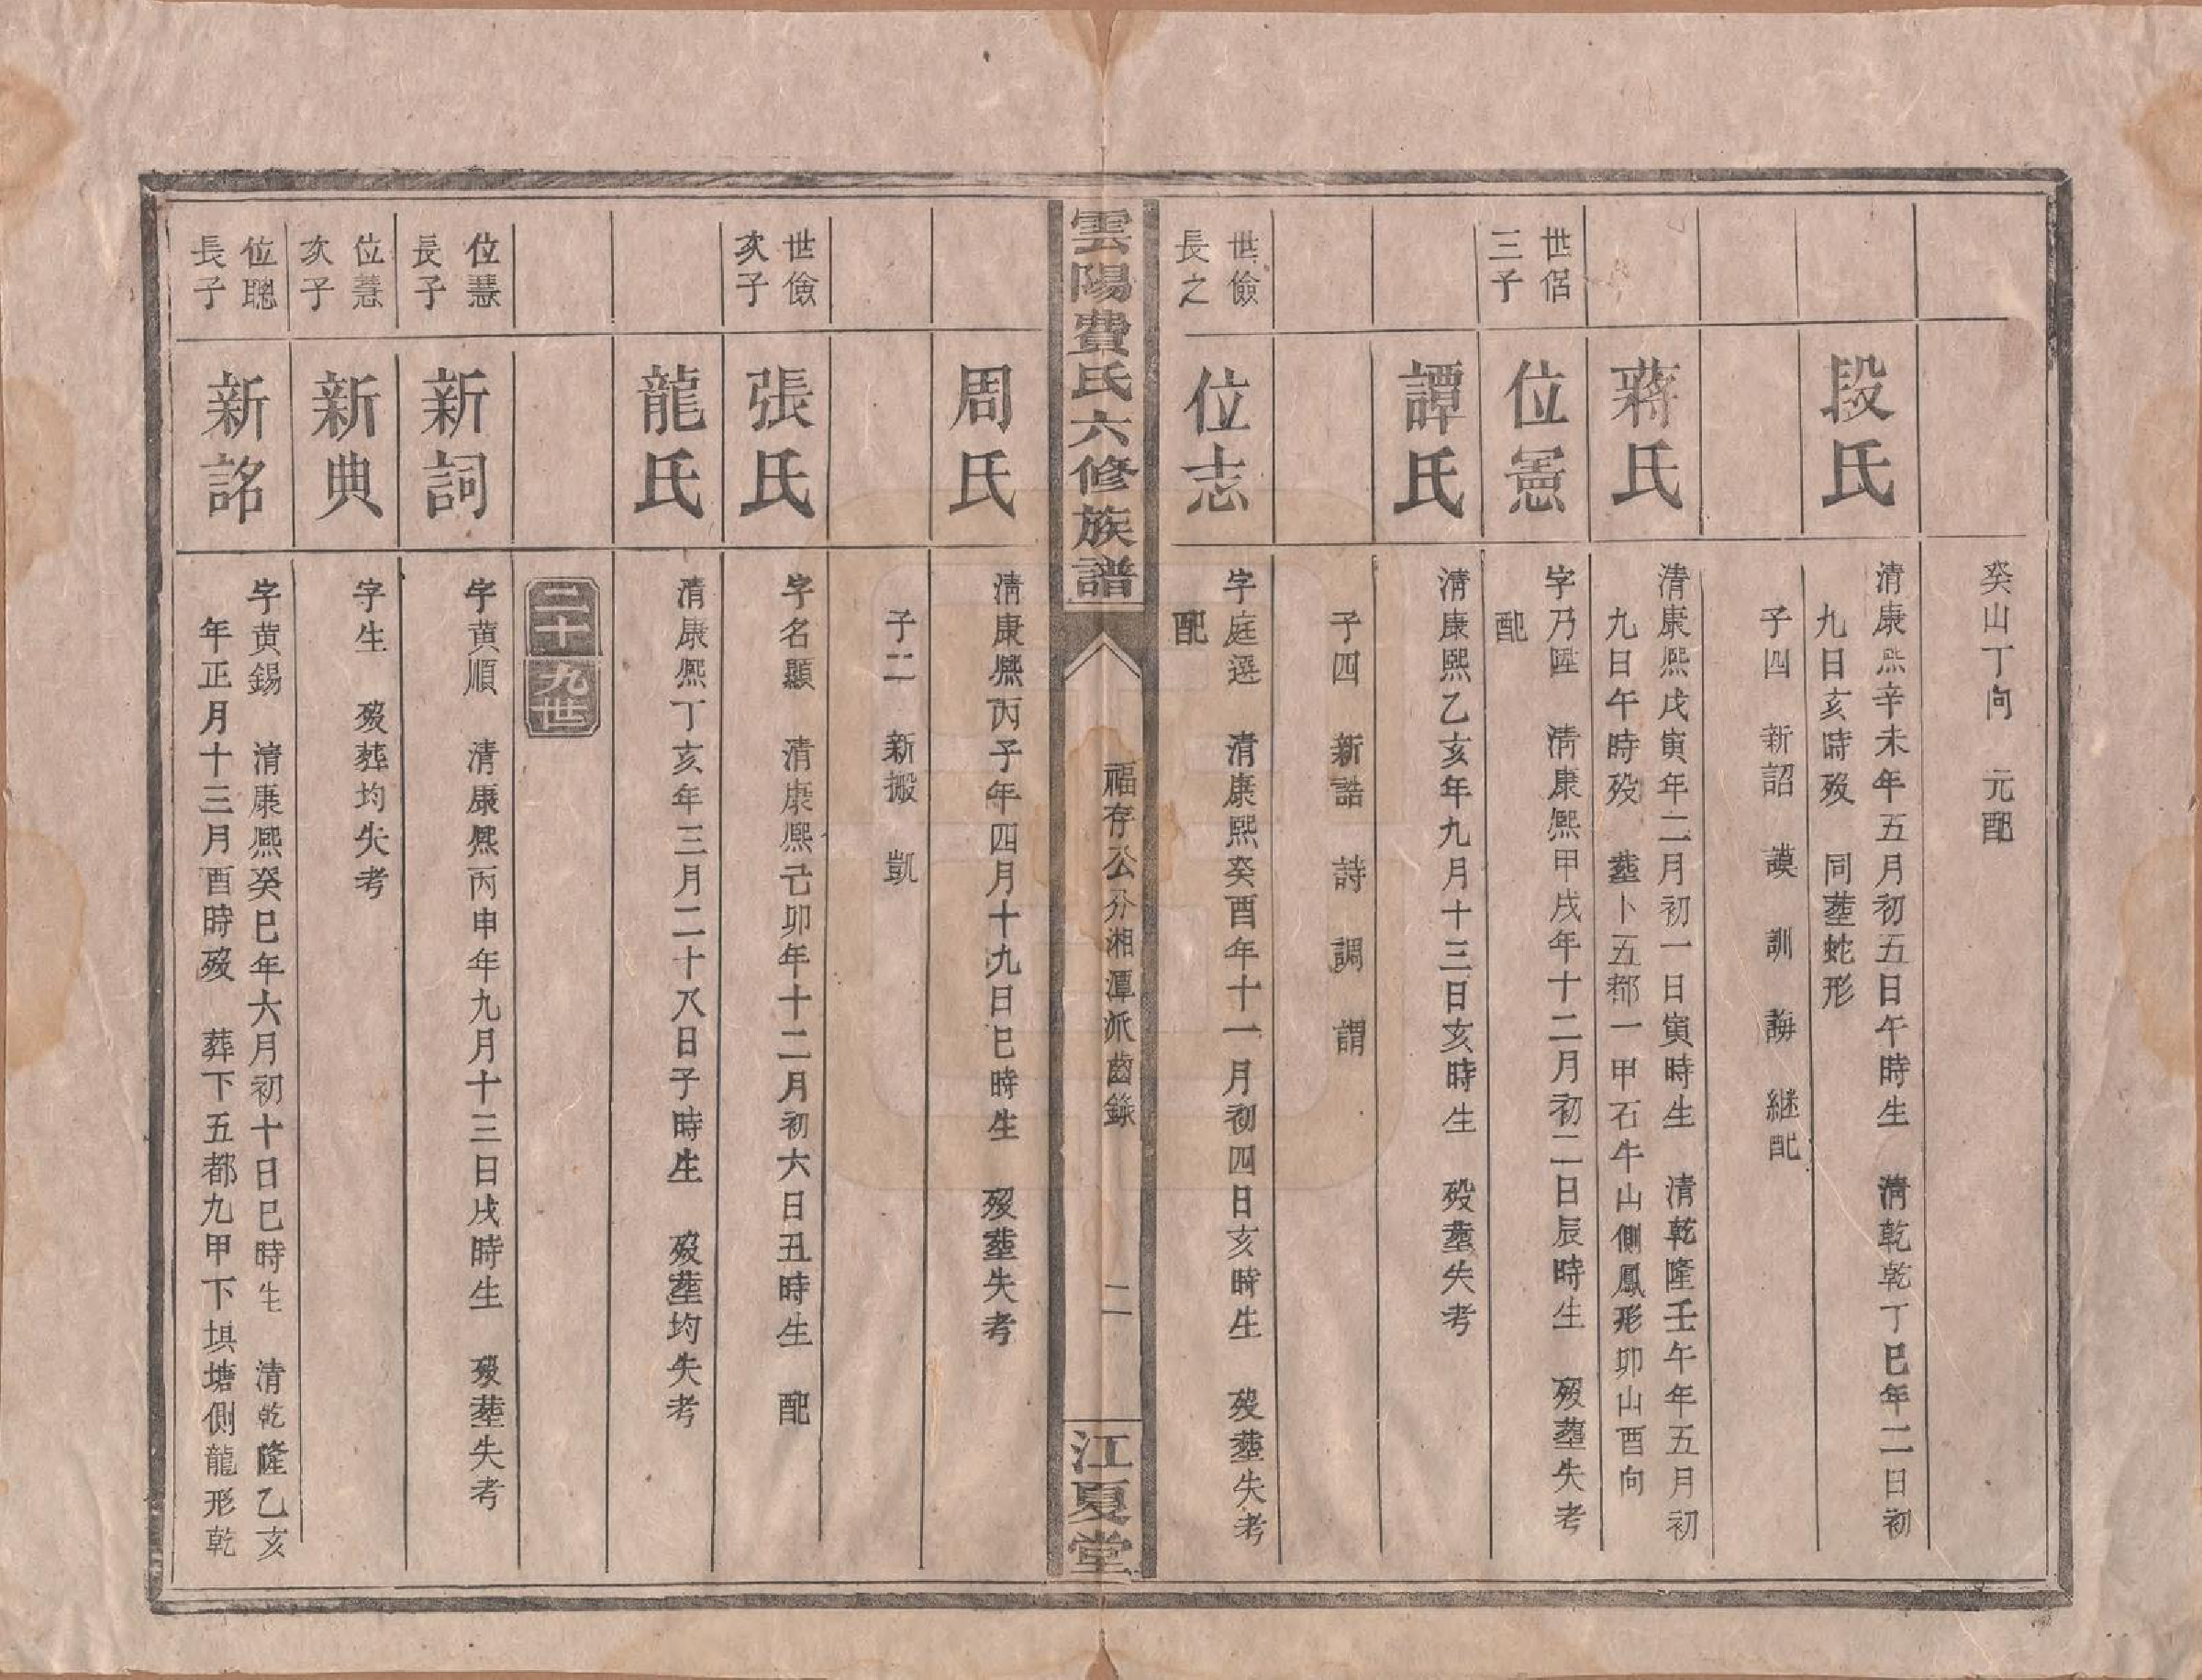 癸山丁向　元配
段氏
清康熙辛未年五月初五日午時生　清乾乾丁巳年二日初
九日亥時歿　同塟蛇形
子四　新詔　謨　訓　誨　継配
蔣氏
清康熙戊寅年二月初一日寅時生　清乾隆壬午年五月初
九日午時歿　塟卜五都一甲石牛山側鳳形卯山酉向
世侶
三子
位憲
字乃陞　清康熙甲戌年十二月初二日辰時生　歿塟失考
配
譚氏
清康熙乙亥年九月十三日亥時生　歿塟失考
子四　新誥　詩　調　謂
世儉
長之
位志
字庭選　清康熙癸酉年十一月初四日亥時生　歿塟失考
配
雲陽費氏六修族譜
福存公分湘潭派齒錄
二
江夏堂
周氏
清康熙丙子年四月十九日巳時生　歿塟失考
子二　新搬　凱
世儉
次子
張氏
字名顯　清康熙己卯年十二月初六日丑時生　配
龍氏
清康熙丁亥年三月二十八日子時生　歿塟均失考
二十九世
位慧
長子
新詞
字黄順　清康熙丙申年九月十三日戌時生　歿塟失考
位慧
次子
新典
字生　歿葬均失考
位聰
長子
新詺
字黄錫　清康熙癸巳年六月初十日巳時生　清乾隆乙亥
年正月十三月酉時歿　葬下五都九甲下埧塘側龍形乾